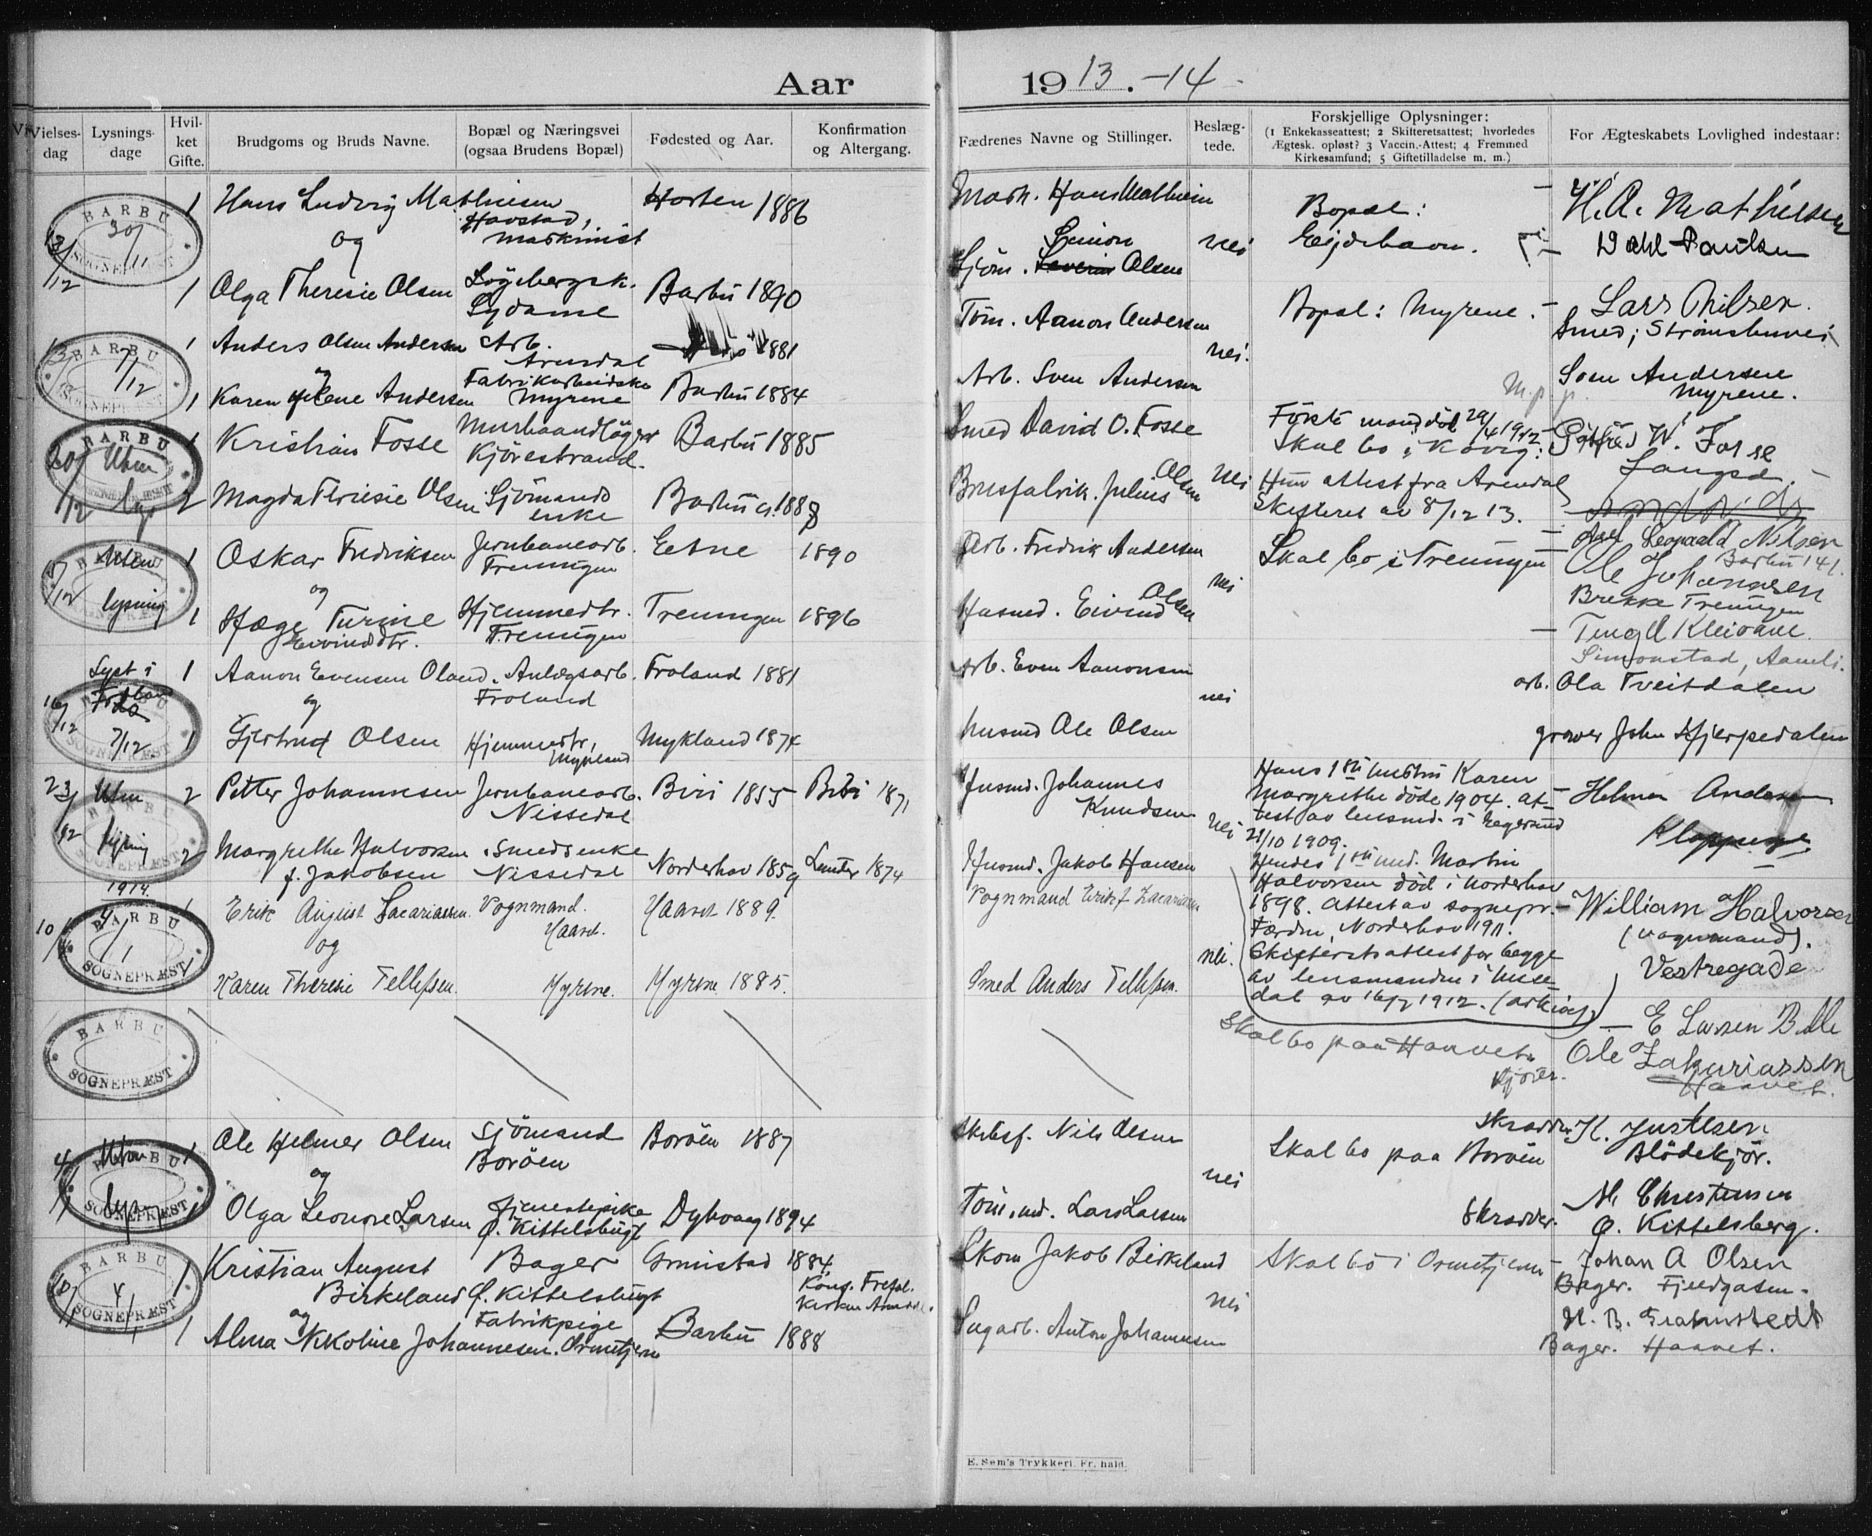 Aar 1913.-14
Vielses-dag
Lysnings-dage
Hvil-ket Gifte.
Brudgoms og Bruds Navne.
Bopæl og Næringsvei (ogsaa Brudens Bopæl)
Fødested og Aar.
Konfirmation og Altergang.
Fædrenes Navne og Stillinger.
Beslæg-tede.
Forskjellige Oplysninger:
(1 Enkekasseattest; 2 Skifteretsattest; hvorledes Ægtesk. opløst? 3 Vaccin.-Attest; 4 Fremmed Kirkesamfund; 5 Giftetilladelse m. m.)
For Ægteskabets Lovlighed indestaar:
BARBU SOGNEPRÆST
13/12
30/11
1 Hans Ludvig Mathiesen
Havstad, maskinist
Horten 1886
Mask. Hans Mathiesen
Bopæl:
H. A. Mathiesen
og
Simon
nei
Dahl Paulsen
1 Olga Theresie Olsen
Sydame
Barbu 1890
Sjöm. Severin Olsen
BARBU SOGNEPRÆST
7/12
1 Anders Olsen Andersen
Arb. Arendal
1881
Töm. Aanon Andersen
nei.
Bopæl: Myrene.
Lars Nilsen.
Smed; Strømsbuvei
og
1 Karen Helene Andersen
Fabrikarbeiderske Myrene
Barbu 1884
Arb. Sven Andersen
Sven Andersen
Myrene.
BARBU SOGNEPRÆST
30/12
Uten lys
1 Kristian Fosse
Murhaandlöger
Kjörestrand.
Barbu 1885
Smed David O. Fosse
Förste mand död 29/4 1912
Skal bo i
W. Fosse
Langsæ.
2 Magda Terisie Olsen
Sjömands enke
Barbu 1888
Brusfabrik. Julius Olsen
nei
Hun attest fra Arendal
Skifteret av 8/12 13.
BARBU SOGNEPRÆST
Uten lysning
1 Oskar Fredriksen
Jernbanearb.
Treungen
Eetne 1890
Arb. Fredrik Andersen
Skal bo i Treungen
Leopold Nilsen
Barbu 141.
og
nei
Ole Johansen
Brekke Treungen
1 Hæge Turine
Eivindsdtr.
Hjemmedtr.
Treungen
Treungen 1896
Husmd. Eivind Olsen
Simonstad, Aamli.
Lyst i Froland
1 Aanon Evensen Oland.
Anlægsarb.
Froland
Froland 1881
Arb. Even Aanonsen
arb. Ola Tveitdalen
BARBU SOGNEPRÆST
16/12
7/12
og
nei
1 Gjertrud Olsen
Hjemmedtr,
Mykland
Mykland 1874
Husmd Ole Olsen
graver John Hjerpedalen
BARBU SOGNEPRÆST
23/12
Uten lysning
2 Petter Johannesen
Jernbanearb.
Nissedal
Biri 1855
Biri 1871
Husmd. Johannes Knudsen
nei
Hans 1ste hustru Karen
Margrethe döde 1904. at-
test av lensmd. i Egersund
21/10 1909.
Helmer Andersen
Kloppene
2 Margrethe Halvorsen
f. Jakobsen
Smedsenke
Nissedal
Norderhov 1859
Lunder 1874
Husmd. Jakob Hansen
Hendes 1ste md. Martin
Halvorsen död i Norderhov
1898. Attest av sognepr.
Færden, Norderhov 1911.
Skifteretsattest for begge
av lensmanden i Nisse-
dal av 16/7 1912. (arkivet)
1914.
BARBU SOGNEPRÆST
10/1
4/1
1 Erik August Sacariassen
Vognmand.
Haavet.
Haavet 1889.
Vognmand Erik Zacariassen
William Halvorsen
(vognmand).
Vestregade
og
nei.
1 Karen Therese Tellefsen.
Myrene.
Myrene 1885.
Smed Anders Tellefsen.
BARBU SOGNEPRÆST
Skal bo paa Haavet
E Larsen
Ole Zakariassen
Haavet.
BARBU SOGNEPRÆST
Uten lysn
1 Ole Helmer Olsen
Sjömand
Boröen
Boröen 1887
Skibsf. Nils Olsen
Skal bo paa Boröen
Skrædder K. Justesen
Blödekjör.
og
nei
1 Olga Leonore Larsen
Tjenestepike
Ø. Kittelsbugt
Dybvaag 1894
Töm.md. Lars Larsen
Skrædder.
M. Christensen
Ø. Kittelsberg.
BARBU SOGNEPRÆST
4/1
1 Kristian August
Birkeland
Bager
Ø. Kittelsbugt
Grimstad 1884
Skom Jakob Birkeland
Skal bo i Ormetjern
Johan A Olsen
Bager. Fjeldgaten.
og
nei
1 Alma Nikoline Johannesen.
Fabrikpige
Ormetjern
Barbu 1888
Sagarb. Anton Johannesen
Bager. Haavet.
E. Sem's Trykkeri. Fr. hald.